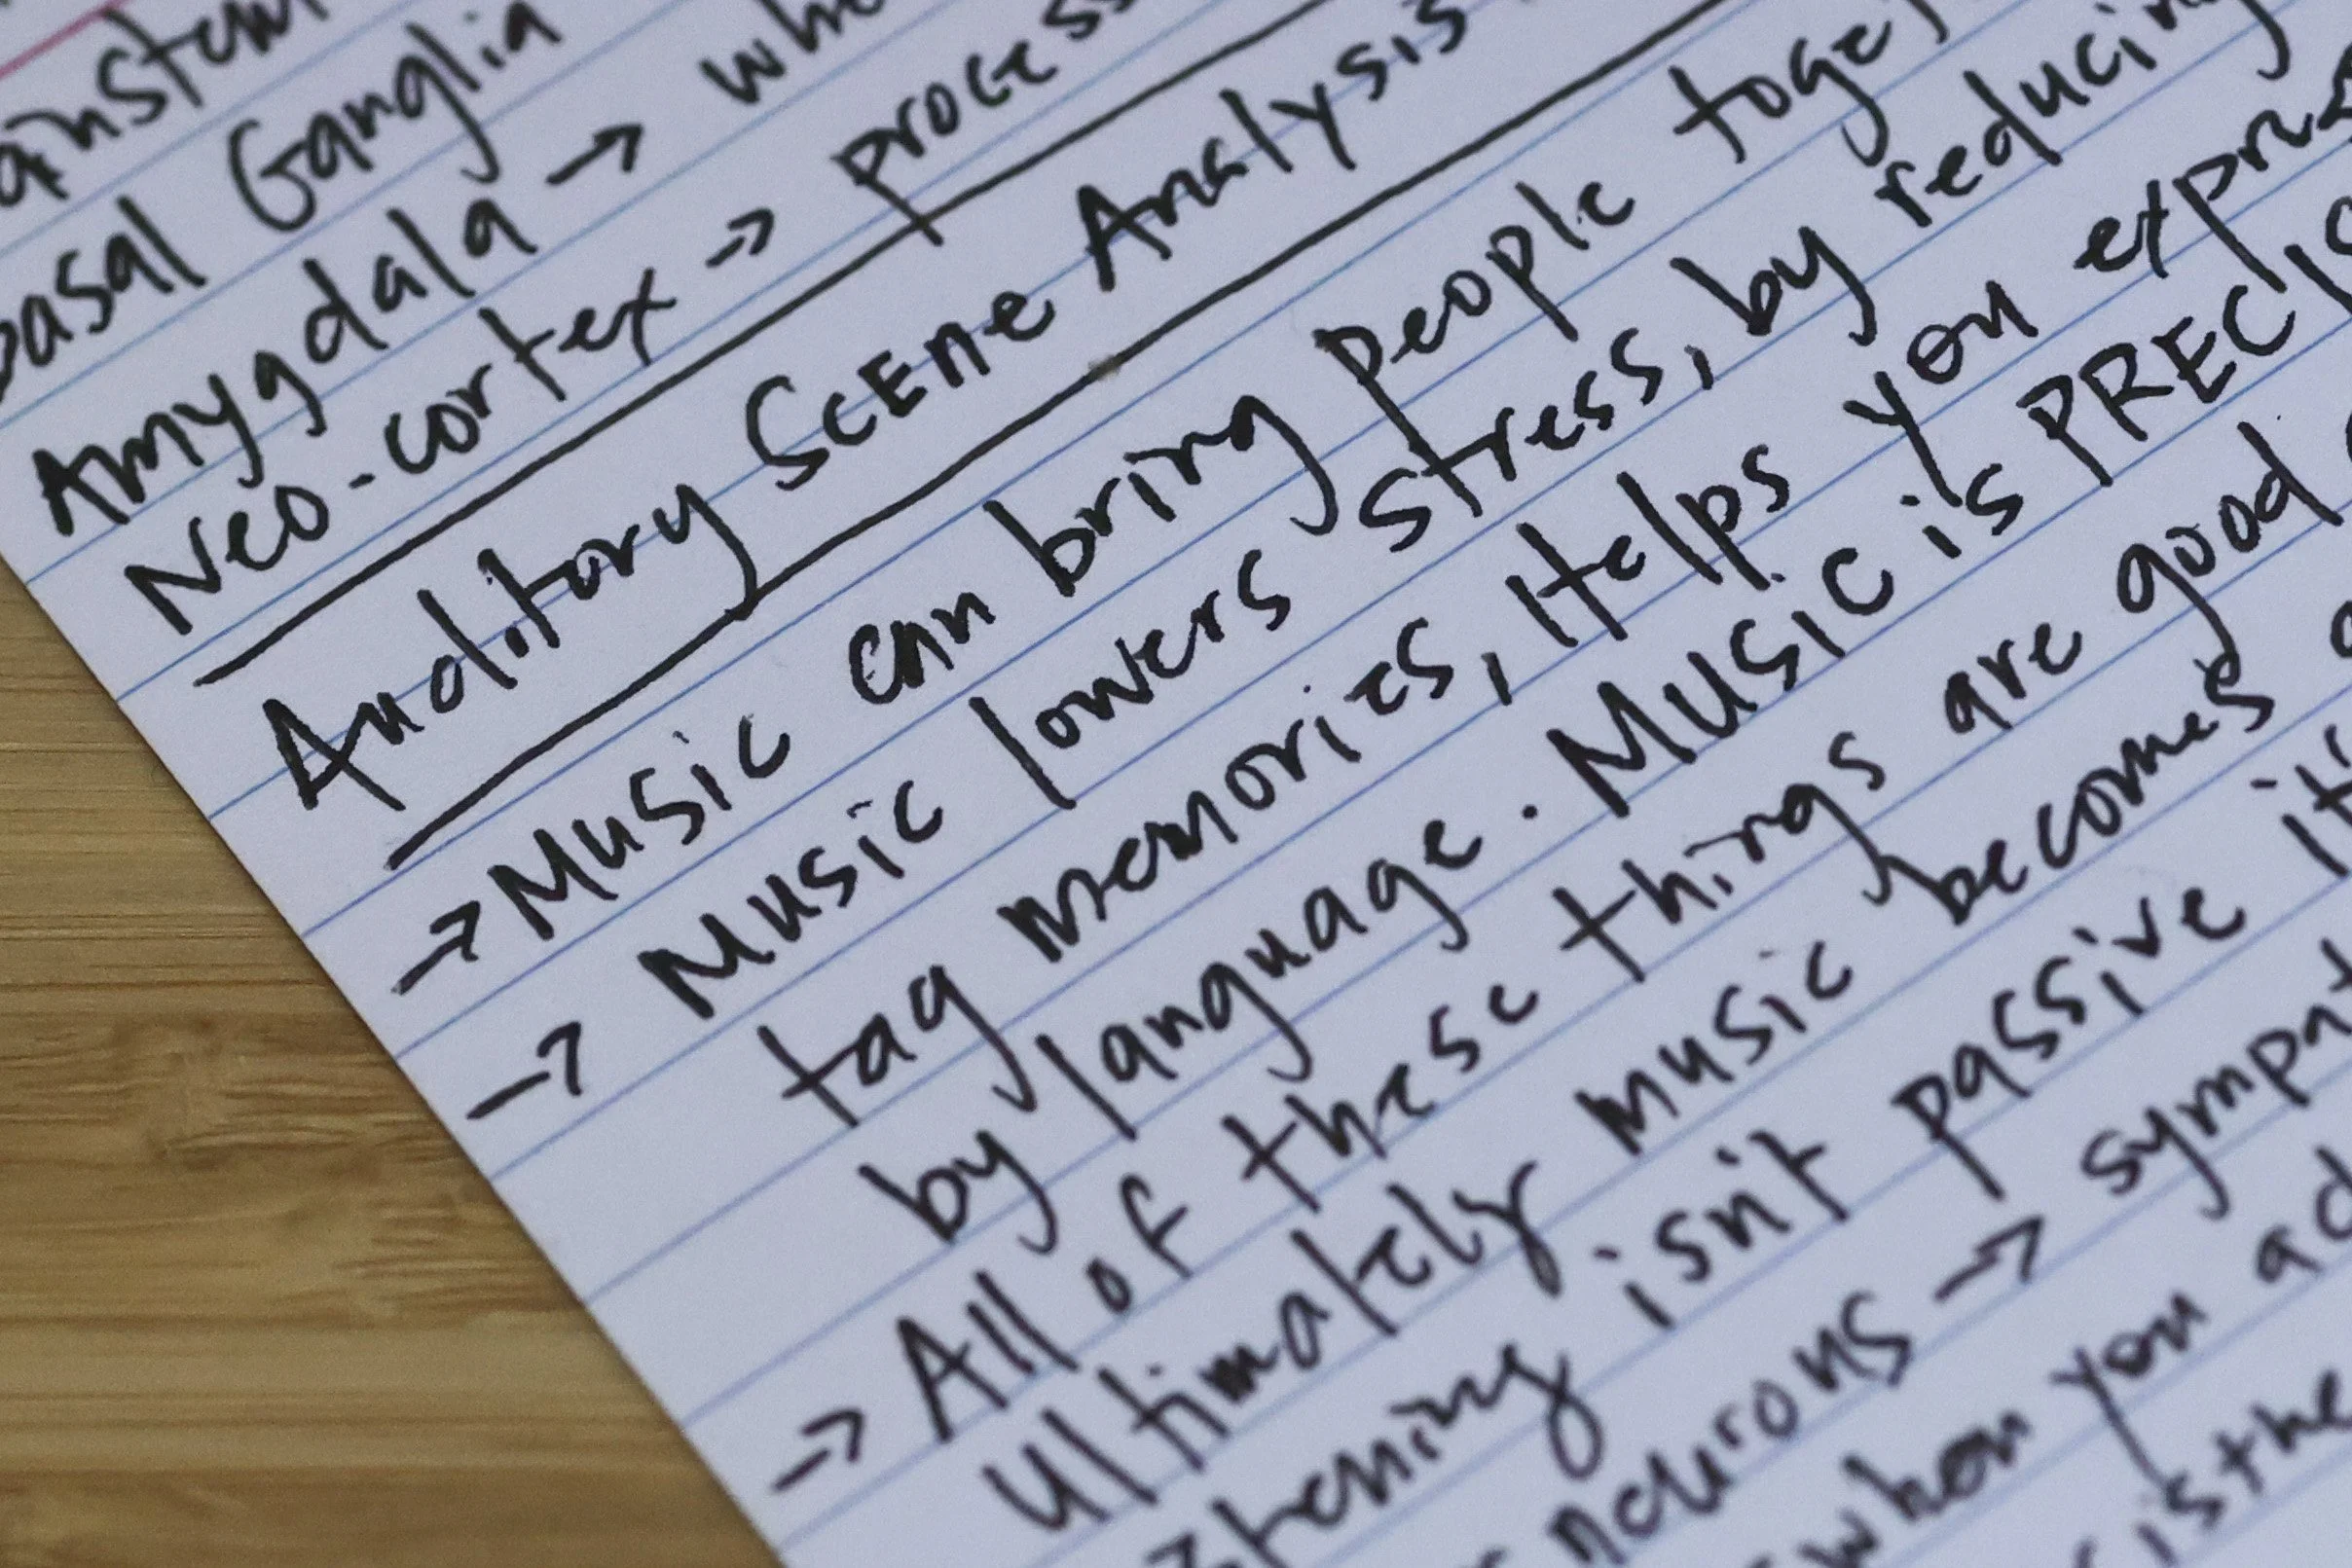 Basal Ganglia
Amygdala →
Neo-cortex →
Auditory Scene Analysis
→ Music can bring people
→ Music lowers stress, by reducing
tag memories, Helps you
by language. Music is
→ All of these things are good
Ultimately music becomes
isn't passive
neurons →
when you
is the